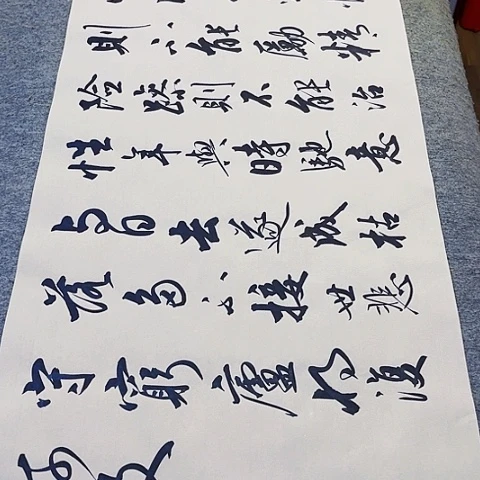 則不能勵精
險躁則不能治
性年與時馳意
与日去遂成枯
落多不接世悲
守窮廬将復
何及